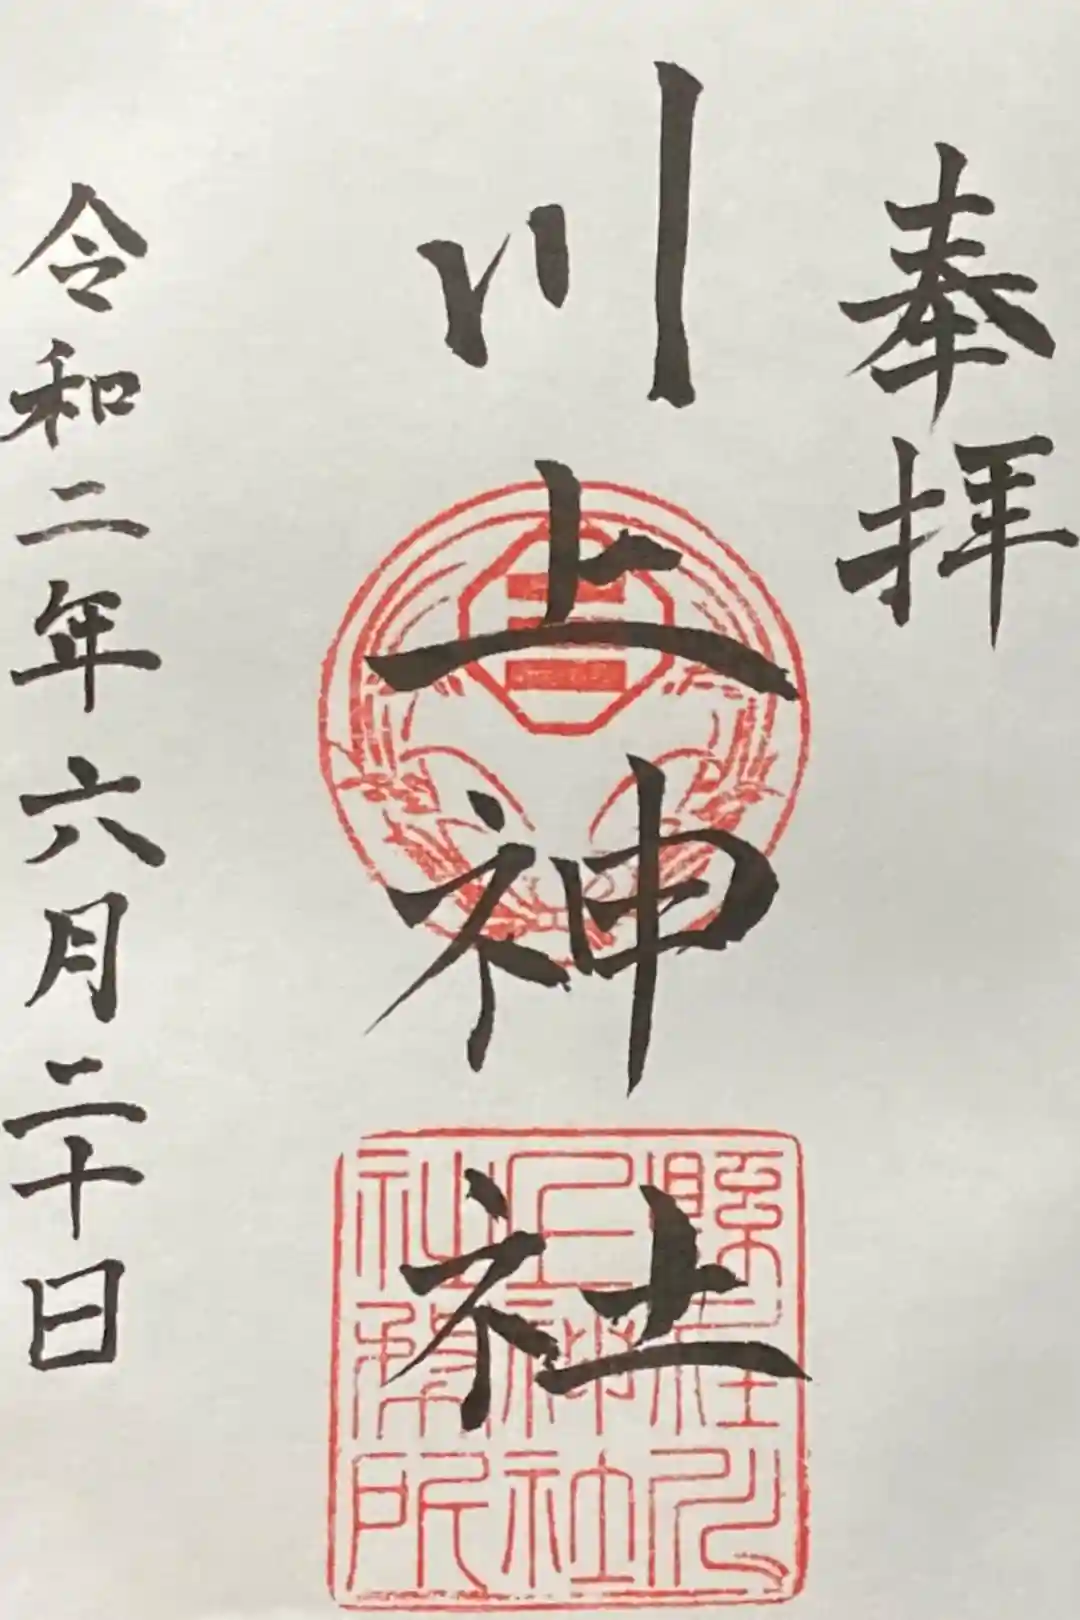 奉拝
川上神社
令和二年六月二十日
縣社川
上神社
社務所